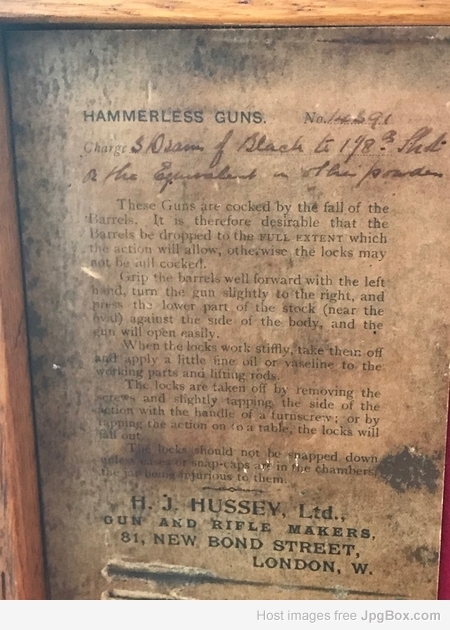 HAMMERLESS GUNS. No.
Charge 3 Drams of Black to 1 1/8 oz Shot
or the Equivalent in other powders
These Guns are cocked by the fall of the
Barrels. It is therefore desirable that the
Barrels be dropped to the FULL EXTENT which
the action will allow, otherwise the locks may
not be full cocked.
Grip the barrels well forward with the left
hand, turn the gun slightly to the right, and
press the lower part of the stock (near the
oval) against the side of the body, and the
gun will open easily.
When the locks work stiffly, take them off
and apply a little fine oil or vaseline to the
working parts and lifting rods.
The locks are taken off by removing the
screws and slightly tapping the side of the
action with the handle of a turnscrew; or by
tapping the action on to a table, the locks will
fall out.
The locks should not be snapped down
unless cases or snap-caps are in the chambers,
the jar being injurious to them.
H. J. HUSSEY, Ltd.,
GUN AND RIFLE MAKERS,
81, NEW BOND STREET,
LONDON, W.
Host images free JpgBox.com